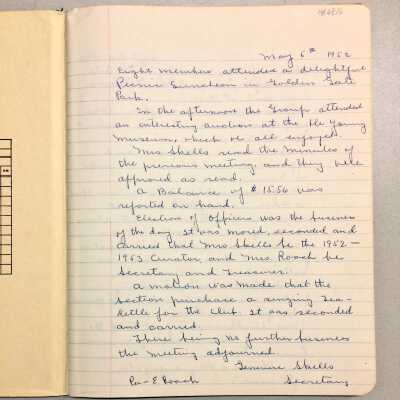 May 6th 1952
Eight members attended a delightful
Picnic Luncheon in Golden Gate
Park.
In the afternoon the Group attended
an interesting auction at the De Young
Museum, which we all enjoyed.
Mrs Skells read the minutes of
the previous meeting, and they were
approved as read.
A Balance of $15.56 was
reported on hand.
Election of Officers was the business
of the day. It was moved, seconded and
carried that Mrs Skells be the 1952—
1953 Curator, and Mrs. Roach be
Secretary and Treasurer.
A motion was made that the
section purchase a singing Tea-
Kettle for the Club. It was seconded
and carried.
There being no further business
the meeting adjourned.
Skells
E Roach Secretary